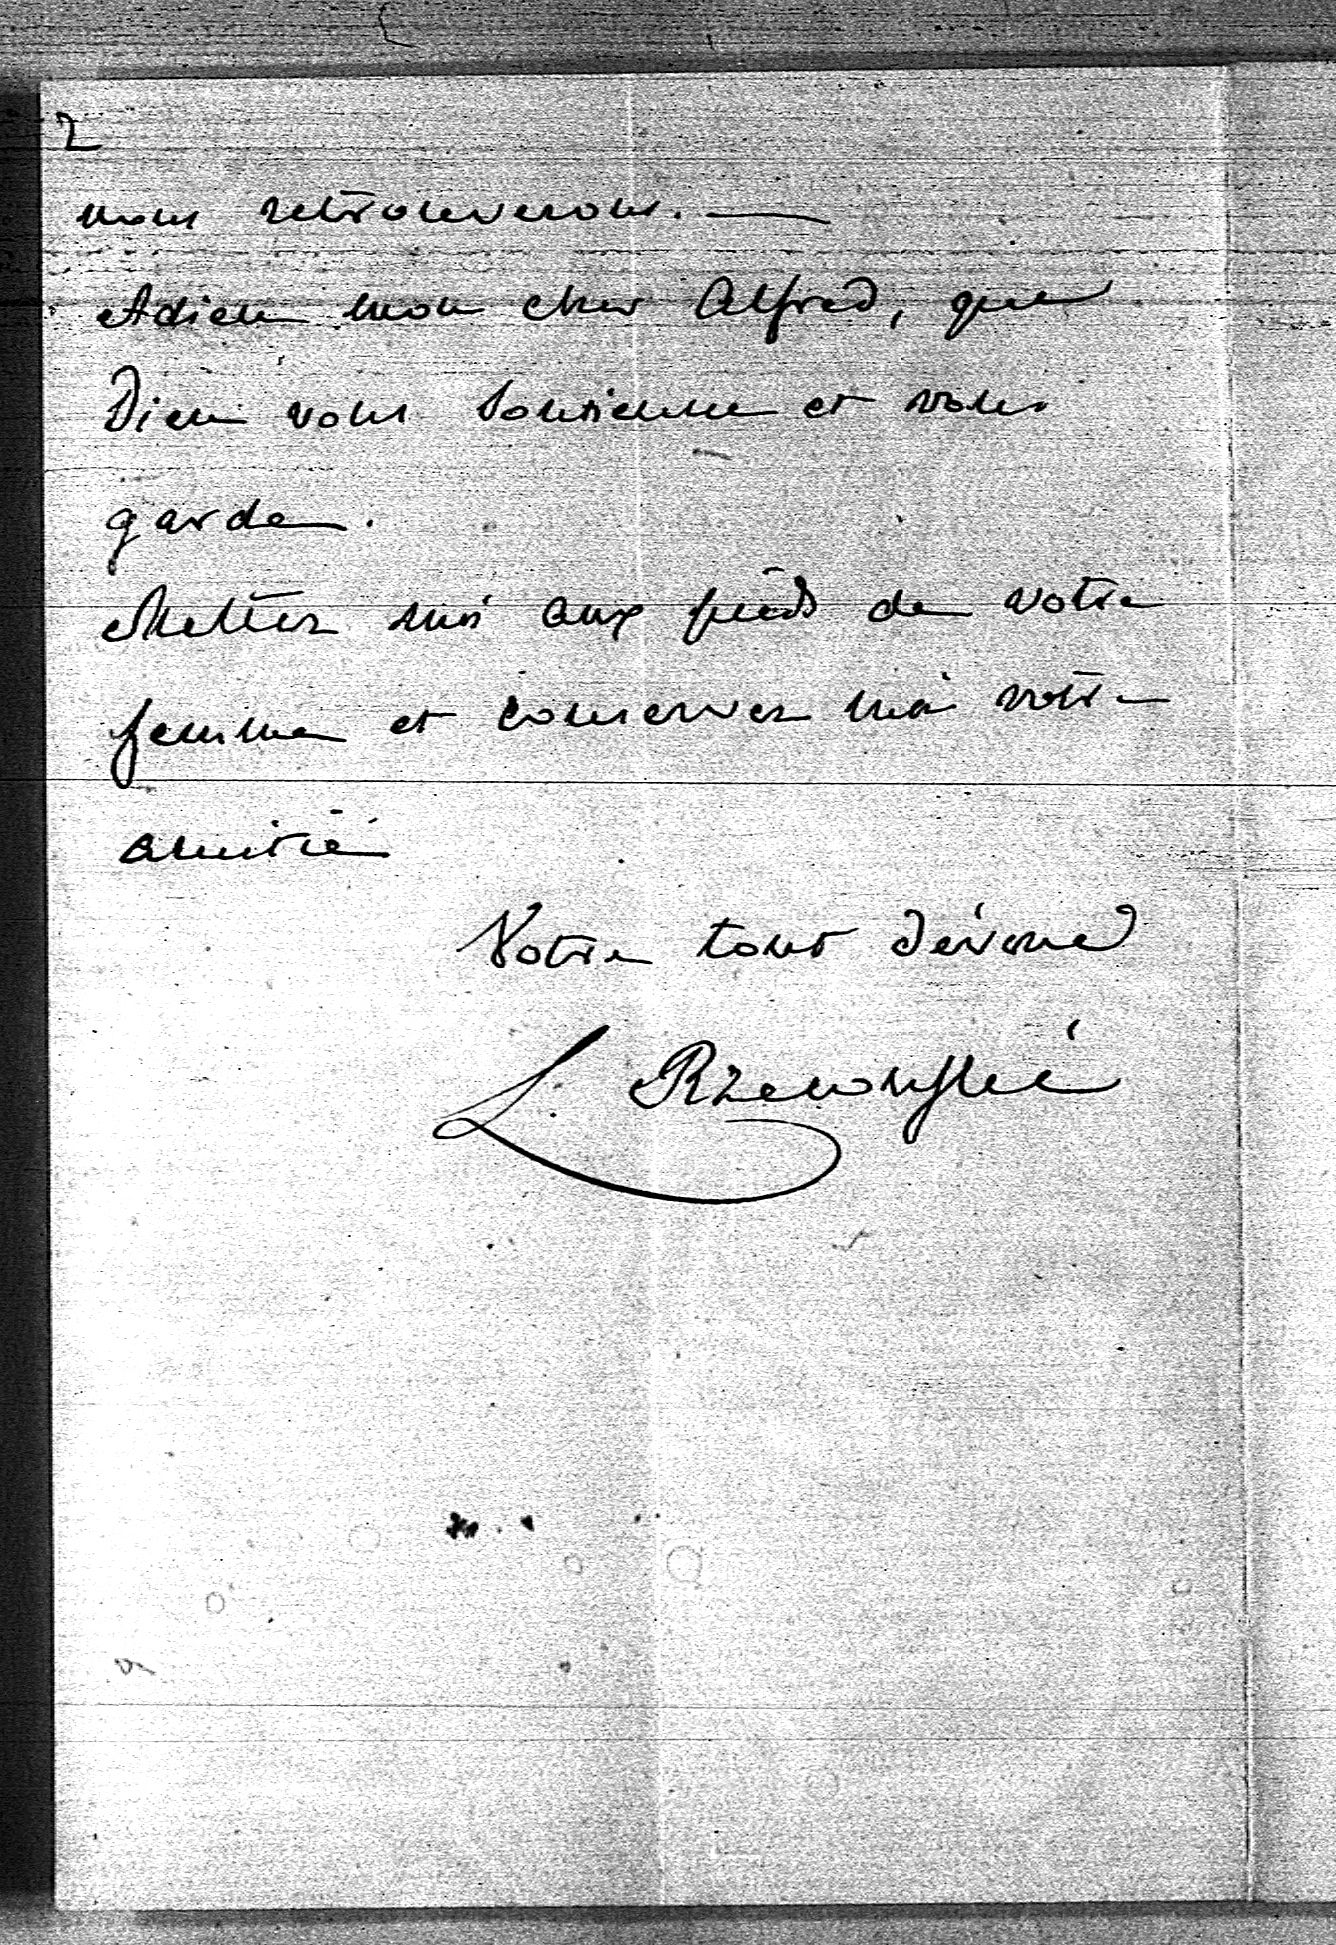 2
nous retrouverons. —
Adieu mon cher Alfred, que
Dieu vous soutienne et vous
garde.
Mettez moi aux pieds de votre
femme et conservez moi votre
amitié
Votre tout dévoué
L. Rzewuski